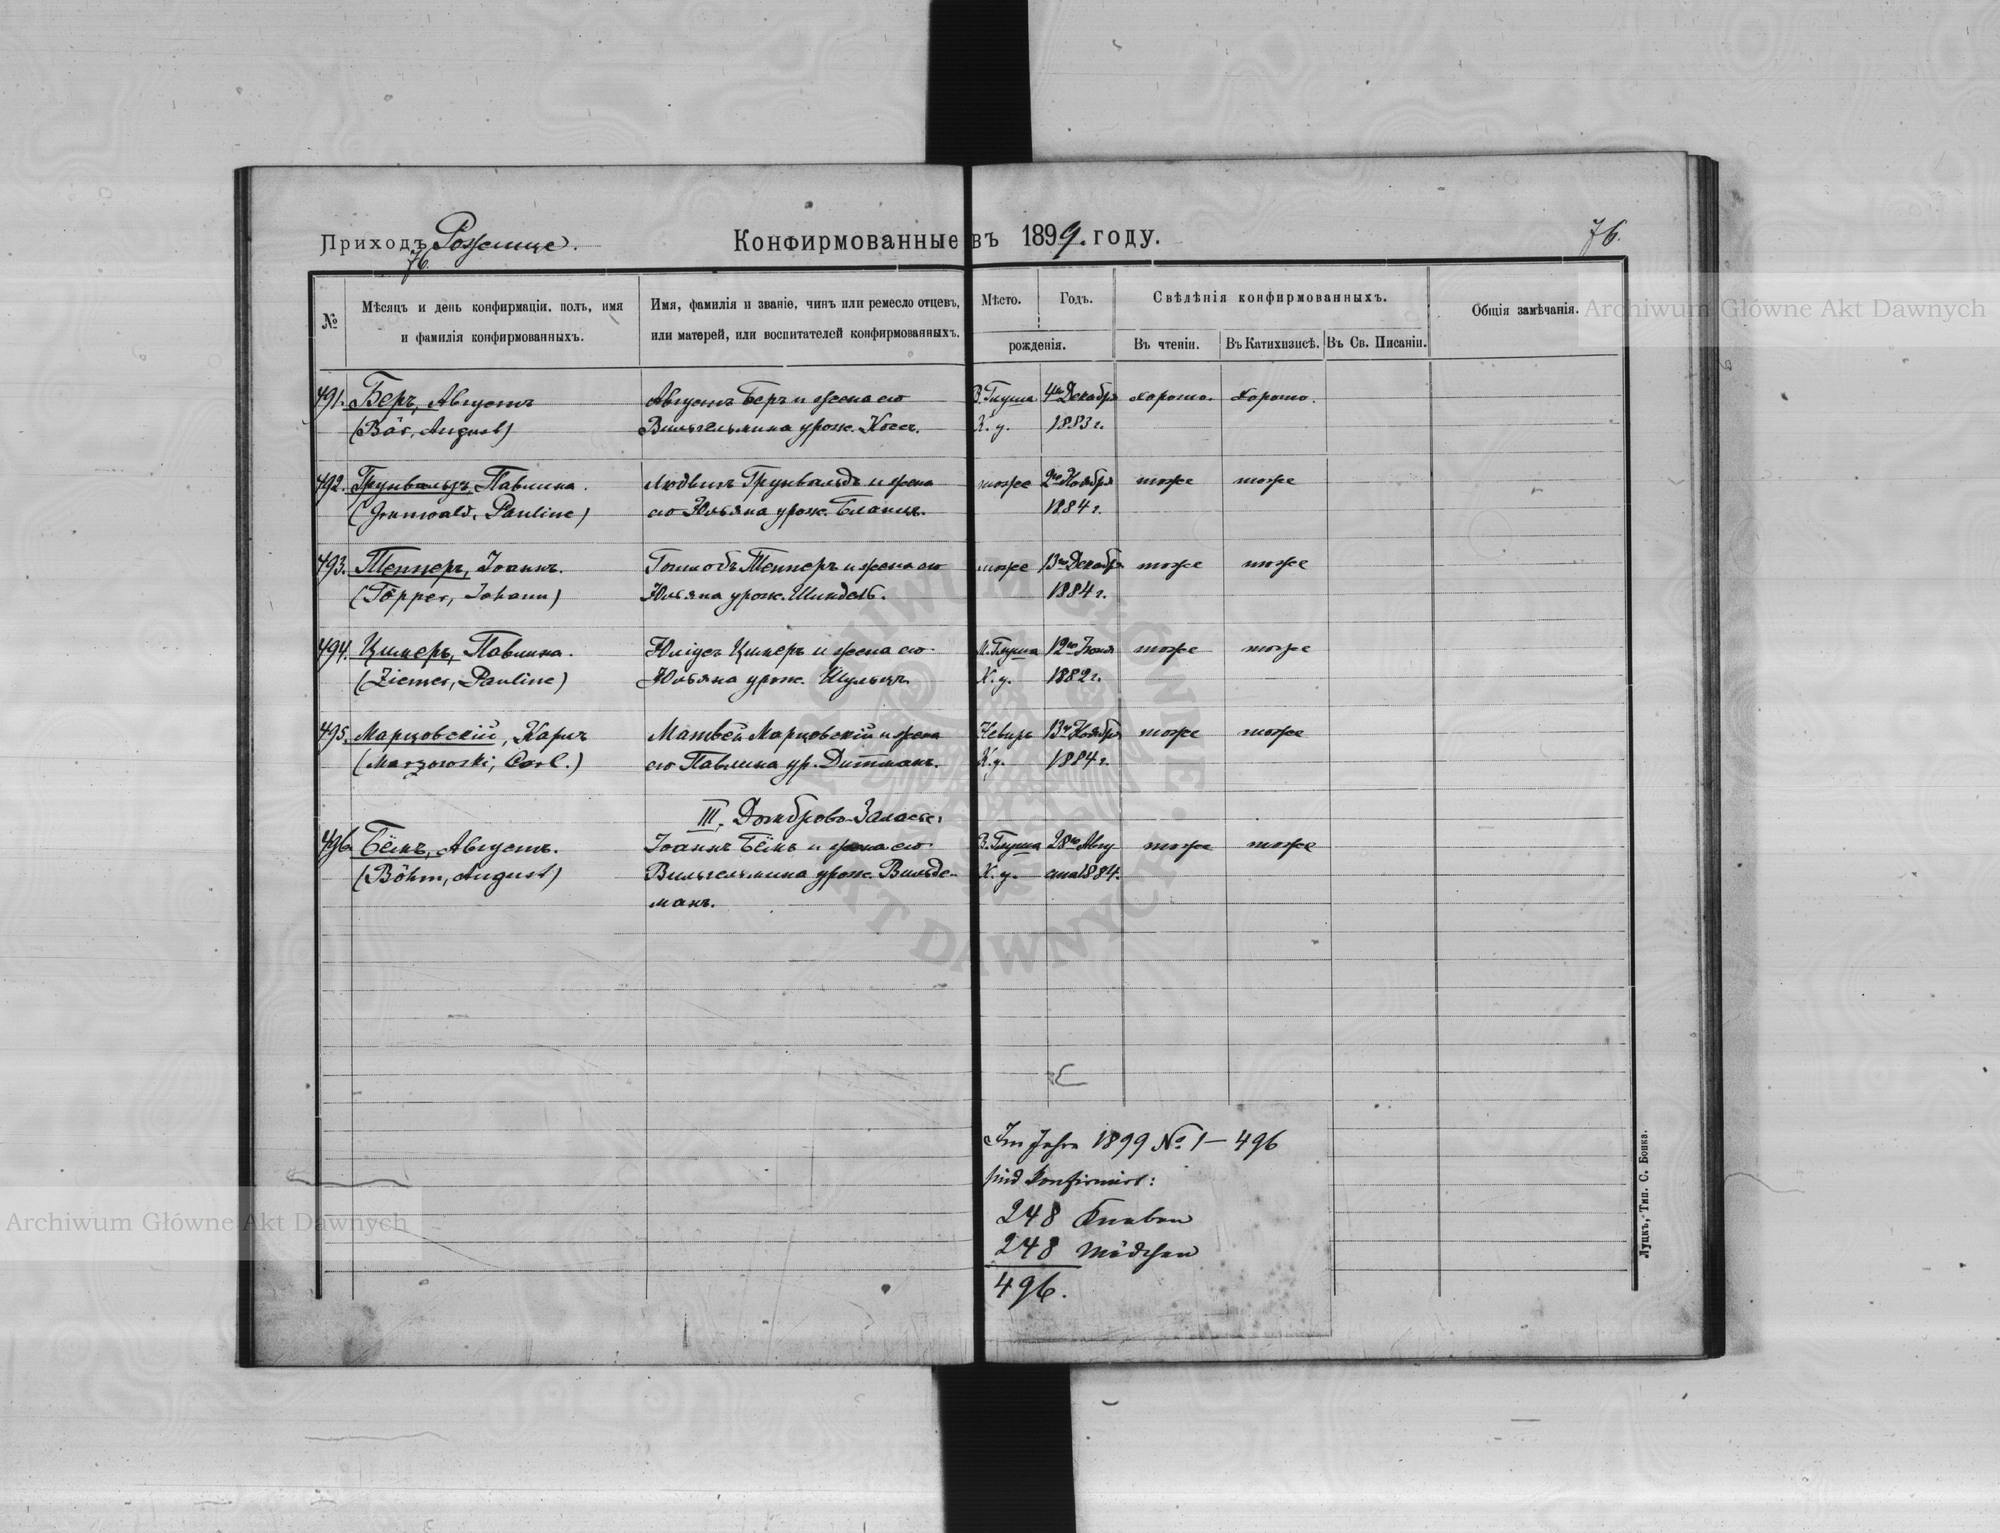 Приходъ Рожище.
Конфирмованные въ 1899. году.
76.
76.
№
Мѣсяцъ и день конфирмаціи, полъ, имя
и фамилія конфирмованныхъ.
Имя, фамилія и званіе, чинъ или ремесло отцевъ,
или матерей, или воспитателей конфирмованныхъ.
Мѣсто.
Годъ.
рожденія.
Свѣдѣнія конфирмованныхъ.
Въ чтеніи.
Въ Катихизисѣ.
Въ Св. Писаніи.
Общія замѣчанія.
491. Беръ, Августъ Августъ Беръ и жена его В. Глуша 4го Декабря хорошо. хорошо.
(Bär, August) Вильгельмина урож. К. у. 1883 г.
492. Грунвальдъ, Павлина. Людвигъ Грунвальдъ и жена тоже 2го Ноября тоже тоже
(Grunwald, Pauline) его Юльяна урож. 1884 г.
493. Тепперъ, Іоаннъ. Готлобъ Тепперъ и жена его тоже 13го Декабр. тоже тоже
(Töpper, Johann) Юльяна урож. Шиндель. 1884 г.
494. Цимеръ, Павлина. Юліусъ Цимеръ и жена его М. Глуша 12го тоже тоже
(Ziemer, Pauline) Юльяна урож. Шульцъ. К. у. 1882 г.
495. Марцовскій, Карлъ Матвей Марцовскій и жена Невиръ 13го Ноября тоже тоже
(Marzowski, Carl.) его Павлина ур. Дитманъ. К. у. 1884 г.
III. Домброво
496. Бёмъ, Августъ. Іоаннъ Бёмъ и жена его В. Глуша 28го Авгу тоже тоже
(Böhm, August) Вильгельмина урож. Вильде- К. у. ста 1884.
манъ.
Im Jahre 1899 No. 1 – 496
sind konfirmirt:
248 Knaben
248 Mädchen
496.
Луцкъ, Тип. С. Бонка.
Archiwum Główne Akt Dawnych
Archiwum Główne Akt Dawnych
ARCHIWUM GŁÓWNE AKT DAWNYCH